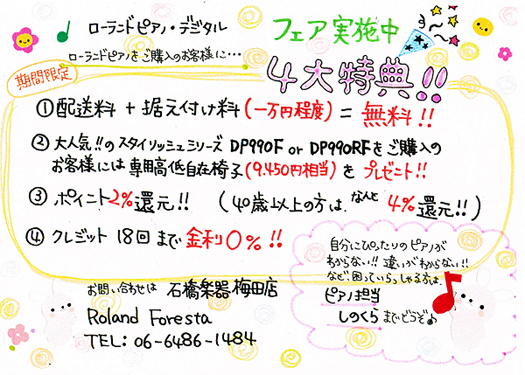 ローランドピアノ・デジタル
フェア実施中
ローランドピアノをご購入のお客様に…
期間限定
4大特典!!
①配送料 + 据え付け料(一万円程度) = 無料!!
②大人気!!のスタイリッシュシリーズ DP990F or DP990RFをご購入の
お客様には専用高低自在椅子(9,450円相当)をプレゼント!!
③ポイント2%還元!! (40歳以上の方は、なんと4%還元!!)
④クレジット18回まで金利0%!!
自分にぴったりのピアノが
わからない!! 違いがわからない!!
など、困っていらっしゃる方は、
ピアノ担当
しのくらまでどうぞ♪
お問い合わせは 石橋楽器 梅田店
Roland Foresta
TEL: 06-6486-1484